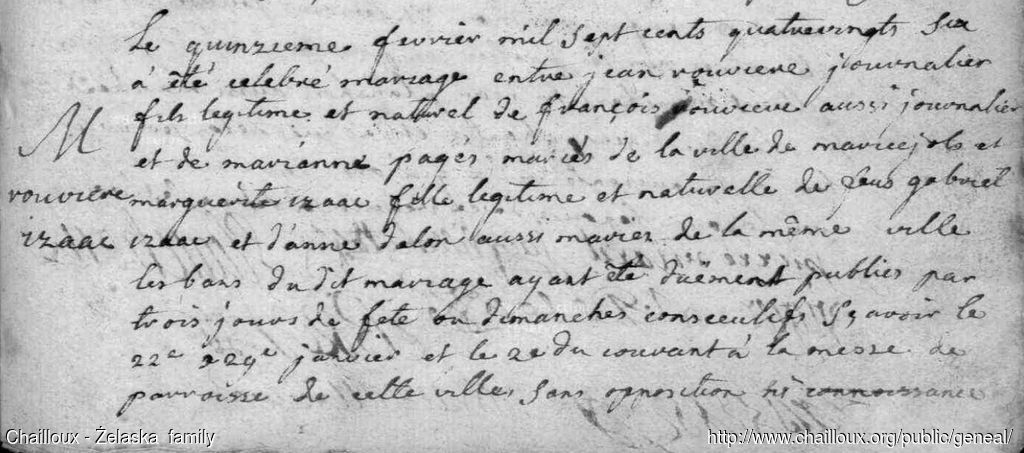 Le quinzieme fevrier mil sept cents quatrevingts six
à été celebré mariage entre jean rouviere journalier
fils legitime et naturel de françois rouviere aussi journalier
M
et de marianne pagés mariés de la ville de maruejols et
rouviere marguerite izaac fille legitime et naturelle de feus gabriel
izaac izaac et d'anne dalon aussi mariez de la même ville
les bans du dit mariage ayant été duëment publies par
trois jours de fete ou dimanches consecutifs sçavoir le
22e 29e janvier et le 2e du courant à la messe de
parroisse de cette ville sans opposition ni connoissance
Chailloux - Żelaska family
http://www.chailloux.org/public/geneal/